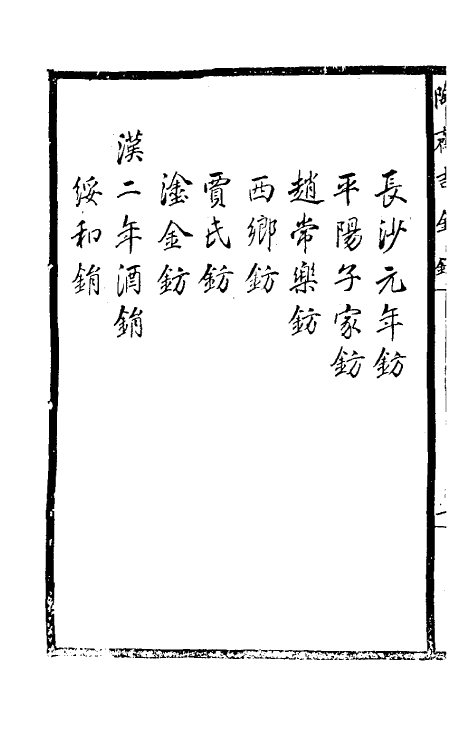 長沙元年鈁
平陽子家鈁
趙常樂鈁
西鄉鈁
賈氏鈁
塗金鈁
漢二年酒鋗
綏和鋗